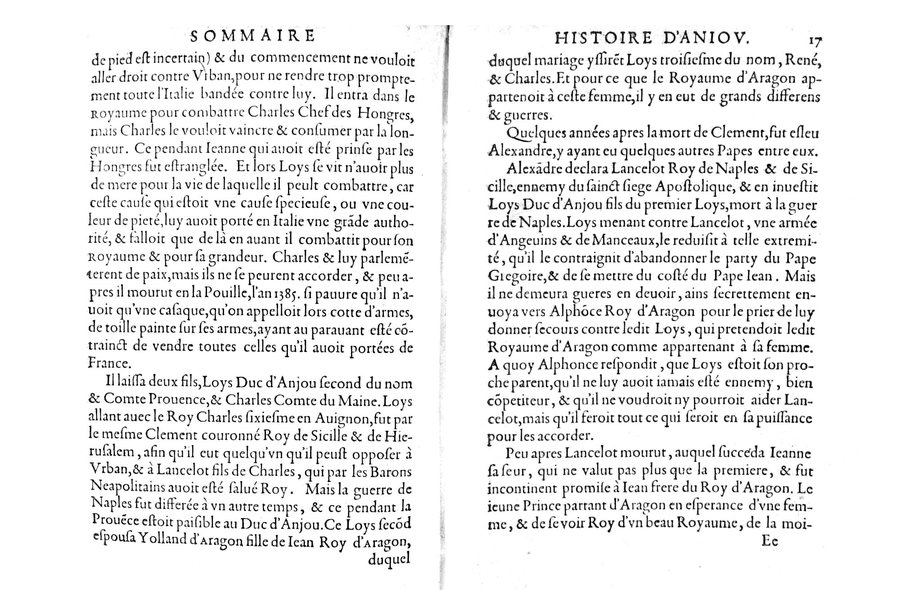 SOMMAIRE
de pied eſt incertain) & du commencement ne vouloit
aller droit contre Vrban,pour ne rendre trop prompte-
ment toute l'Italie bandée contre luy. Il entra dans le
Royaume pour combattre Charles Chef des Hongres,
mais Charles le vouloit vaincre & conſumer par la lon-
gueur. Ce pendant Ieanne qui auoit eſté prinſe par les
Hongres fut eſtranglée. Et lors Loys ſe vit n'auoir plus
de mere pour la vie de laquelle il peult combattre, car
ceſte cauſe qui eſtoit vne cauſe ſpecieuſe, ou vne cou-
leur de pieté,luy auoit porté en Italie vne grãde autho-
rité, & falloit que de là en auant il combattit pour ſon
Royaume & pour ſa grandeur. Charles & luy parlemẽ-
terent de paix,mais ils ne ſe peurent accorder , & peu a-
pres il mourut en la Pouille,l'an 1385. ſi pauure qu'il n'a-
uoit qu'vne caſaque,qu'on appelloit lors cotte d'armes,
de toille painte ſur ſes armes,ayant au parauant eſté cõ-
trainct de vendre toutes celles qu'il auoit portées de
France.
Il laiſſa deux fils,Loys Duc d'Anjou ſecond du nom
& Comte Prouence,& Charles Comte du Maine. Loys
allant auec le Roy Charles ſixieſme en Auignon,fut par
le meſme Clement couronné Roy de Sicille & de Hie-
ruſalem , afin qu'il eut quelqu'vn qu'il peuſt oppoſer à
Vrban,& à Lancelot fils de Charles, qui par les Barons
Neapolitains auoit eſté ſalué Roy. Mais la guerre de
Naples fut differée à vn autre temps, & ce pendant la
Prouẽce eſtoit paiſible au Duc d'Anjou. Ce Loys ſecõd
eſpouſa Yolland d'Aragon fille de Iean Roy d'Aragon,
duquel
HISTOIRE D'ANIOV. 17
duquel mariage yſſirẽt Loys troiſieſme du nom , René,
& Charles.Et pour ce que le Royaume d'Aragon ap-
partenoit à ceſte femme,il y en eut de grands differens
& guerres.
Quelques années apres la mort de Clement,fut eſleu
Alexandre,y ayant eu quelques autres Papes entre eux.
Alexãdre declara Lancelot Roy de Naples & de Si-
cille,ennemy du ſainct ſiege Apoſtolique, & en inueſtit
Loys Duc d'Anjou fils du premier Loys,mort à la guer
re de Naples.Loys menant contre Lancelot, vne armée
d'Angeuins & de Manceaux,le reduiſit à telle extremi-
té , qu'il le contraignit d'abandonner le party du Pape
Gregoire,& de ſe mettre du coſté du Pape Iean . Mais
il ne demeura gueres en deuoir , ains ſecrettement en-
uoya vers Alphõce Roy d'Aragon pour le prier de luy
donner ſecours contre ledit Loys , qui pretendoit ledit
Royaume d'Aragon comme appartenant à ſa femme.
A quoy Alphonce reſpondit , que Loys eſtoit ſon pro-
che parent,qu'il ne luy auoit iamais eſté ennemy , bien
cõpetiteur, & qu'il ne voudroit ny pourroit aider Lan-
celot,mais qu'il feroit tout ce qui ſeroit en ſa puiſſance
pour les accorder.
Peu apres Lancelot mourut, auquel ſucceda Ieanne
ſa ſeur, qui ne valut pas plus que la premiere, & fut
incontinent promiſe à Iean frere du Roy d'Aragon. Le
ieune Prince partant d'Aragon en eſperance d'vne fem-
me, & de ſe voir Roy d'vn beau Royaume, de la moi-
Ee